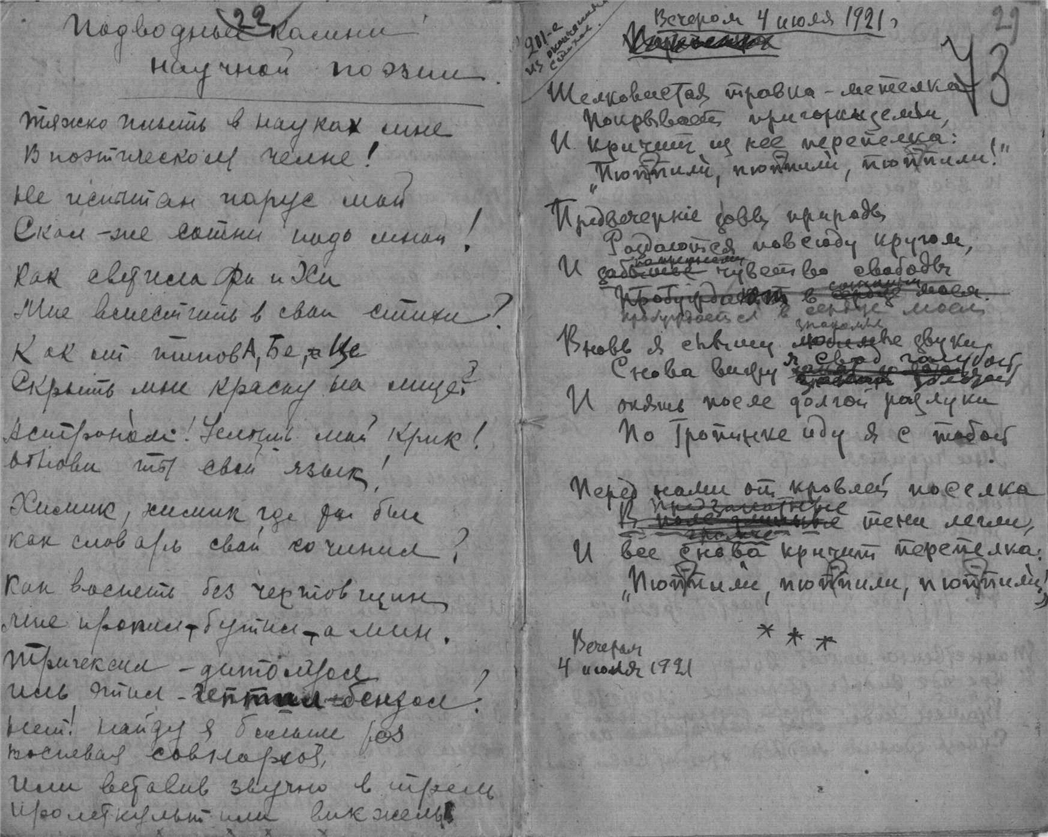 22
Подводные камни
научной поэзии.
Тяжко плыть в науках мне
В поэтическом челне!
Не испытан парус мой
Скал-же сотни подо мной!
Как светила Фи и Хи
Мне вместить в свои стихи?
Как от типов А, Бе, Це
Скрыть мне краску на лице?
Астроном! Услышь мой крик!
Обнови ты свой язык!
Химик, химик где ты был
как словарь свой сочинил?
Как воспеть без чертовщин
Мне пропил-бутил-амин.
Три
или этил-гептил-бензол?
Нет! Найду я больше
воспевая совнархоз,
Или вставив звучно в трель
пролеткульт или викжель!
29
73
201-е
из окончания
стихов
Вечером 4 июля 1921 г
Шелковистая травка-метелка
Покрывает пригорки земли,
И кричит из нее перепелка:
"Пютьпили, пютьпили, пютьпили!"
Предвечерние зовы природы
Раздаются повсюду кругом,
И чувство свободы
Пробуждает в сердце моем.
пробуждается в сердце моем
знакомые
Вновь я слышу звуки
Снова вижу я свод голубой
И опять после долгой разлуки
По тропинке иду я с тобой.
Перед нами от кровлей поселка
предзакатные
тени легли,
громче
И все снова кричит перепелка:
"Пютьпили, пютьпили, пютьпили!"
* * *
Вечером
4 июля 1921